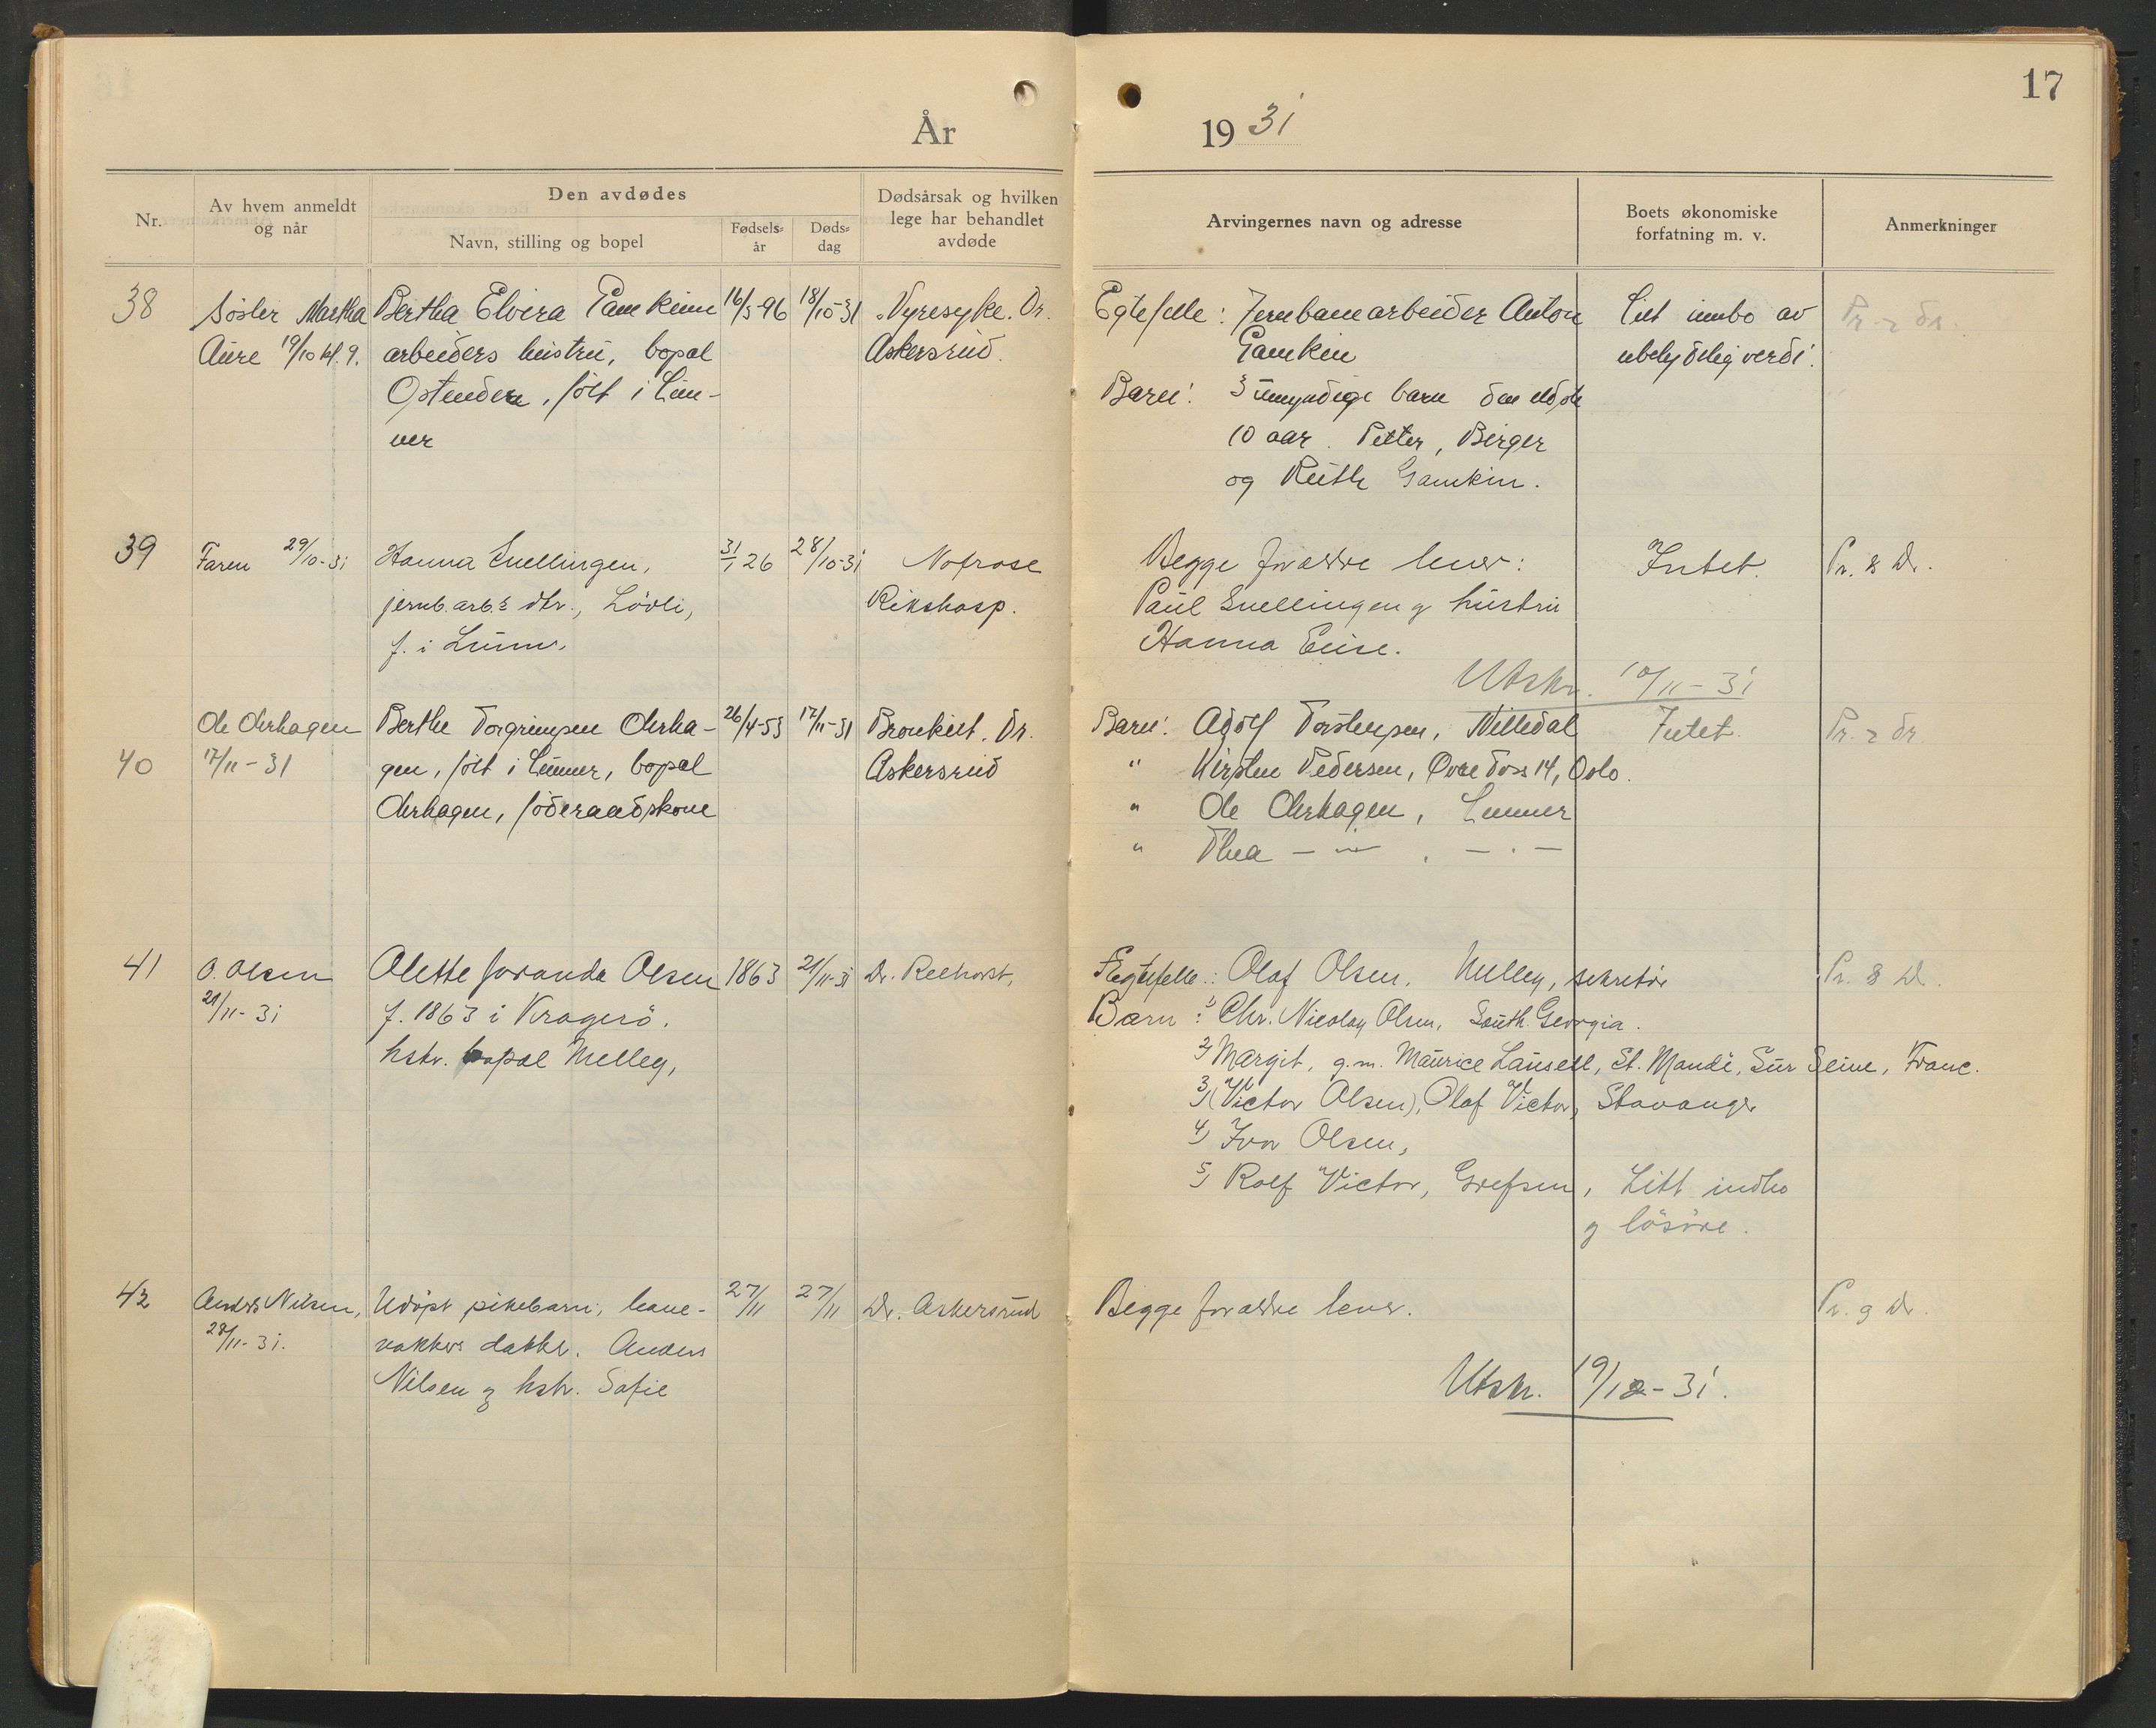 17
År 1931
Nr.
Av hvem anmeldt og når
Den avdødes
Navn, stilling og bopel
Fødsels=år
Døds=dag
Dødsårsak og hvilken lege har behandlet avdøde
Arvingernes navn og adresse
Boets økonomiske forfatning m. v.
Anmerkninger
38
Søster Martha
Aure 19/10 kl. 9.
Bertha Elvira Gamkinn
arbeiders hustru, bopal
Opstendere, født i Lun-
ner
16/5-96
18/10-31
Nyresyke. Dr.
Askersrud.
Egtefelle: Jernbanearbeider Anton
Gamkin
Barn: 3 umyndige barn den eldste
10 aar. Petter, Birger
og Ruth Gamkin.
Litt innbo av
ubetydelig verdi.
Pr. 2 dr.
39
Faren 29/10-31
Hanna Snellingen,
jernb.arb.s dtr., Lövli,
f. i Lunner.
31/1 26
28/10-31
Nofrose
Rikshosp.
Begge forældre lever:
Paul Snellingen og hustru
Hanna Elise.
Intet.
Pr. 8 Dr.
Utskr. 10/11-31
40
Ole Oherhagen
17/11-31
Berthe Torgrimsen Oherha-
gen, født i Lunner, bopal
Oherhagen, föderaadskone
26/4-53
17/11-31
Bronkitt. Dr.
Askersrud
Barn: Adolf Torstensen, Nittedal
" Kirsten Pedersen, Øvre Foss 14, Oslo.
" Ole Oherhagen, Lunner
" Thea — " — . — . —
Intet.
Pr. 2 dr
41
O. Olsen
21/11-31
Olette Jovanda Olsen
f. 1863 i Kragerö.
hstr. bopal Melley,
1863
21/11-31
Dr. Reehorst,
Egtefelle: Olaf Olsen. Melley, sekretör
Barn: 1) Chr. Nicolay Olsen, South Georgia.
2) Margit, g.m. Maurice Lansell, St. Mandé, Sur Seine, Franc.
3) (Victor Olsen), Olaf Victor, Stavanger
4) Ivar Olsen,
5) Rolf Victor, Grefsen, Litt indbo
og lösöre.
Pr. 8 Dr.
42
Anders Nilsen,
28/11-31.
Udöpt pikebarn, bane-
vokters datter. Anders
Nilsen og hstr. Sofie
27/11
27/11
Dr. Askersrud
Begge forældre lever.
Pr. 9 Dr.
Utskr. 19/12-31.